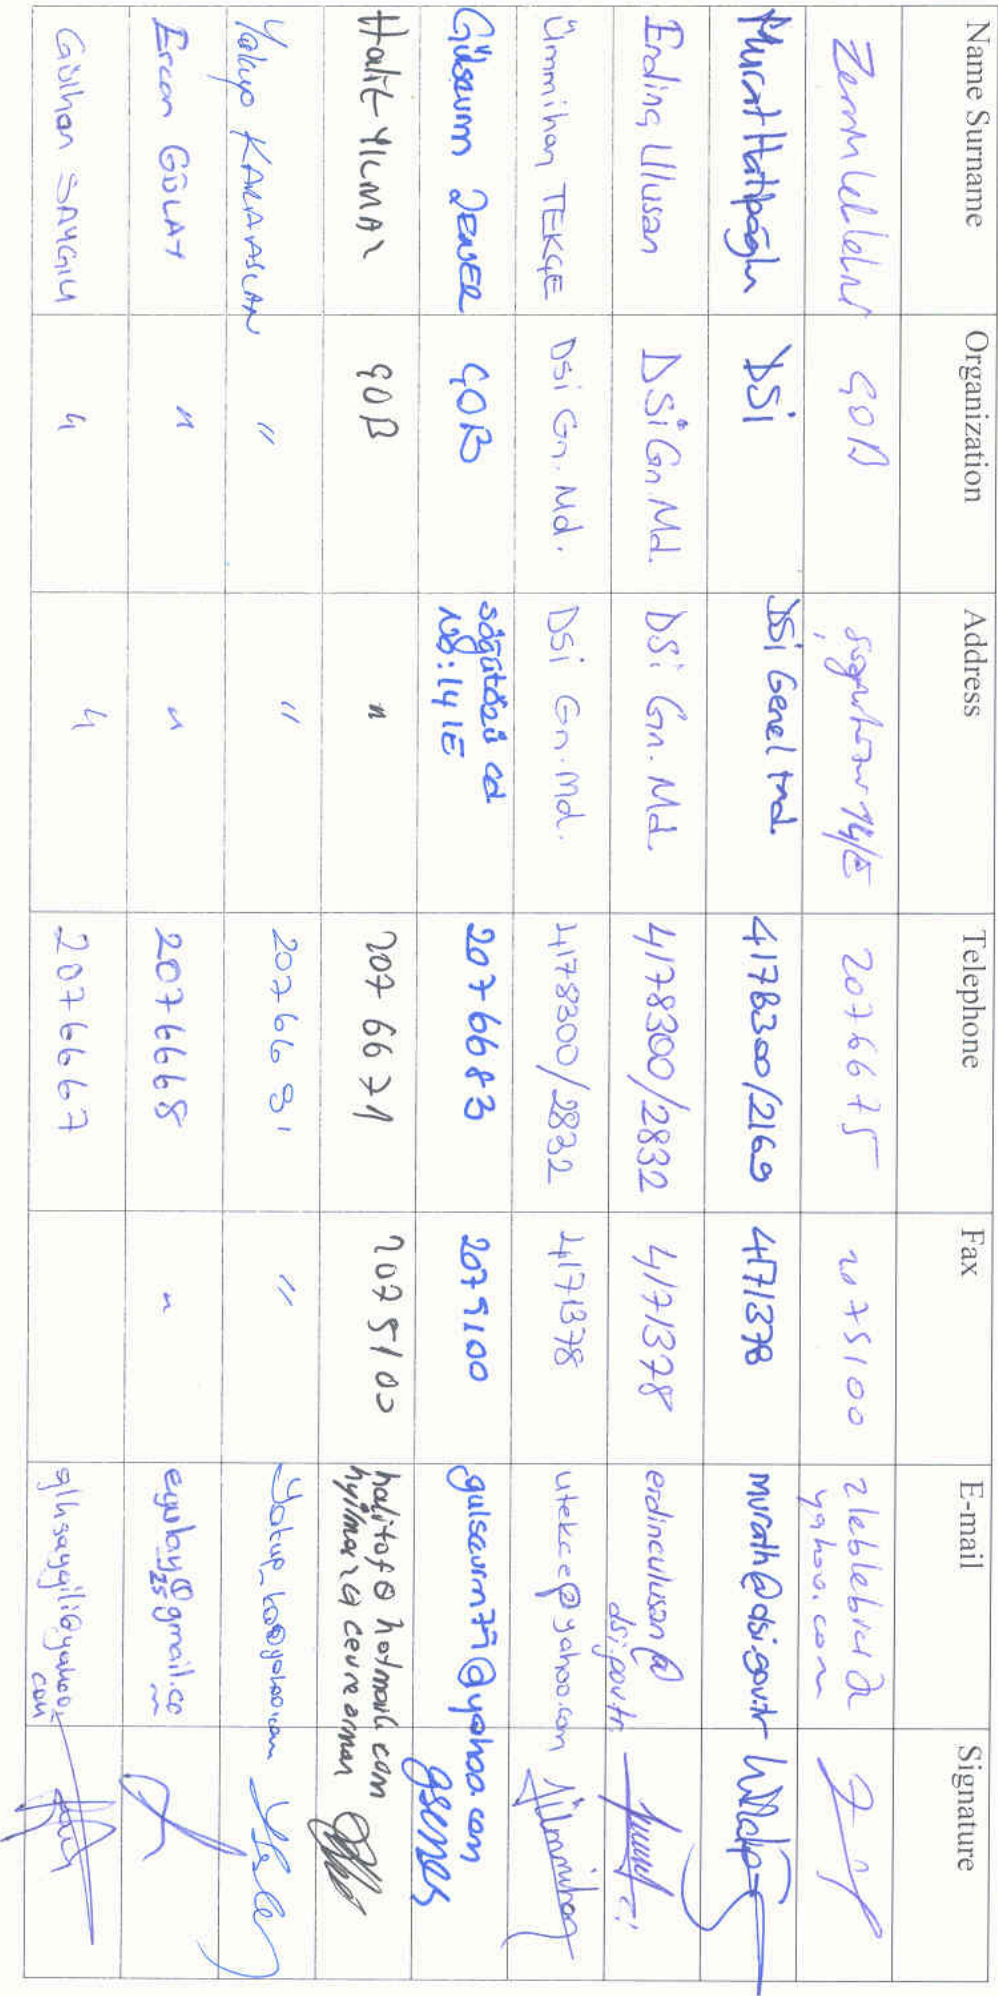 Name Surname Organization Address Telephone Fax E-mail Signature
ÇOB 14/E 2076675 2075100 zleblebici@
yahoo.com
Murat Hatipoğlu DSİ DSİ Genel Md. 4178300/2169 4171378 murath@dsi.gov.tr
Erdinç Ulusan DSİ Gn. Md. DSİ Gn. Md. 4178300/2832 4171378 erdinculusan@
dsi.gov.tr
Ümmihan TEKÇE DSİ Gn. Md. DSİ Gn. Md. 4178300/2832 4171378 utekce@yahoo.com Ümmihan
Gülsevim ŞENER ÇOB söğütözü cd 2076683 2075100 gulsevim77@yahoo.com gsener
No:14/E
Halit YILMAZ ÇOB " 207 6671 2075100 halitof@hotmail.com
hyilmaz@cevreorman
Yakup KARAASLAN " " "
Ercan GÜLAY " " 2076668 " egulay25@gmail.co
m
Gülhan SAYGILI " " 2076667 glhsaygili@yahoo.
com